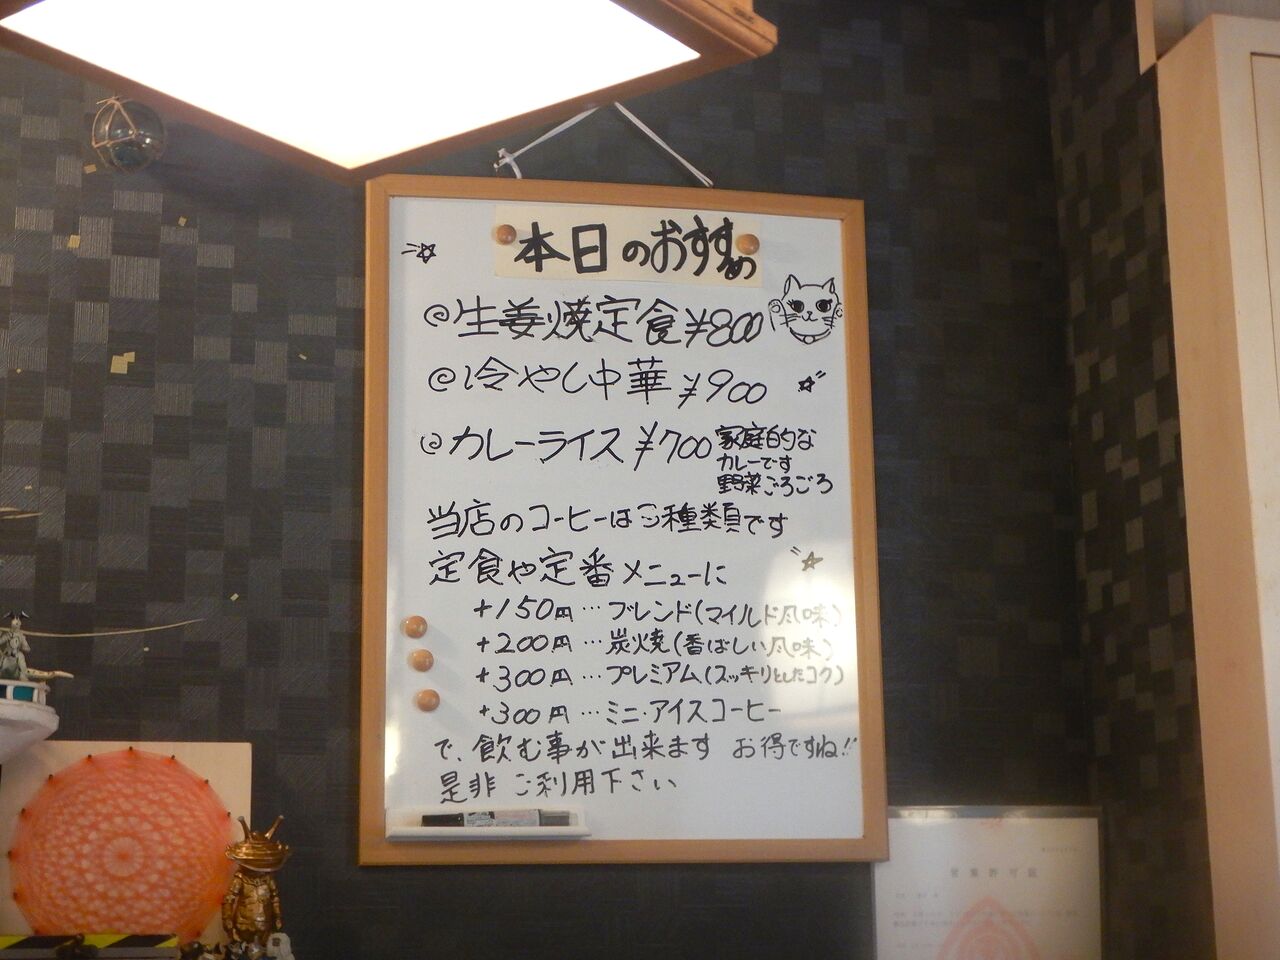 本日のおすすめ
生姜焼定食¥800
冷やし中華¥900
カレーライス¥700
家庭的な
カレーです
野菜ごろごろ
当店のコーヒーは3種類です
定食や定番メニューに
+150円…ブレンド(マイルド風味)
+200円…炭火焼(香ばしい風味)
+300円…プレミアム(スッキリとしたコク)
+300円…ミニ・アイスコーヒー
で、飲む事が出来ます お得ですね!!
是非ご利用下さい
営業許可証